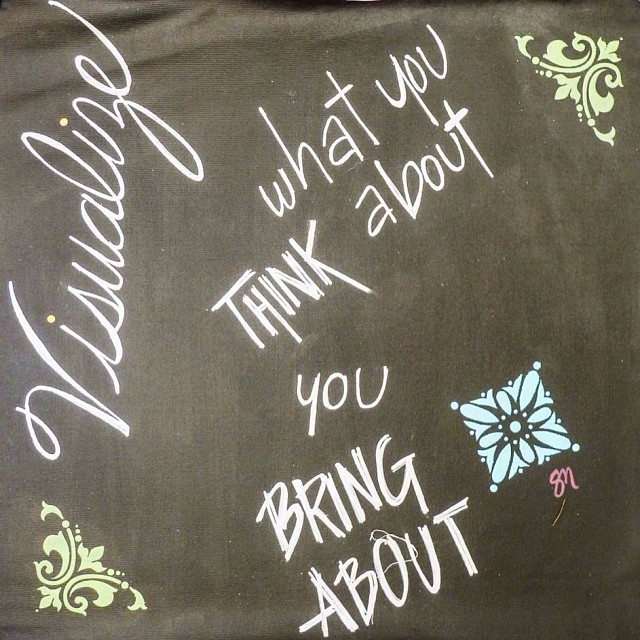 Visualize
what you
THINK about
YOU
BRING
ABOUT
gn